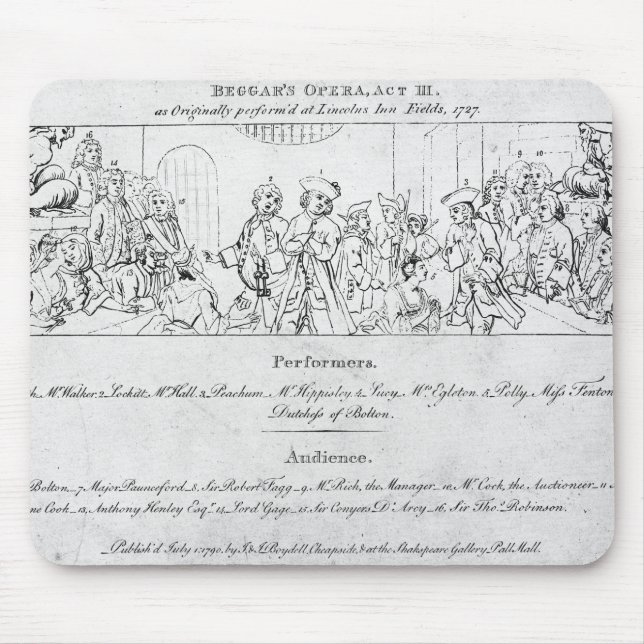 BEGGAR'S OPERA, ACT III.
as Originally perform'd at Lincolns Inn Fields, 1727.
16
14
15
2
1
3
11
9
10
12
13
Performers.
Mr. Walker. 2. Lockitt Mr. Hall. 3. Peachum Mr. Hippisley. 4. Lucy Mrs. Egleton. 5. Polly Miss Fenton
Dutchess of Bolton.
Audience.
Bolton. 7. Major Paunceford. 8. Sir Robert Fagg. 9. Mr. Rich, the Manager. 10. Mr. Cock, the Auctioneer. 11
Cook. 13. Anthony Henley Esqr. 14. Lord Gage. 15. Sir Conyers D'Arcy. 16. Sir Thos. Robinson.
Publish'd July 1: 1790. by J. & J. Boydell, Cheapside, & at the Shakspeare Gallery Pall Mall.